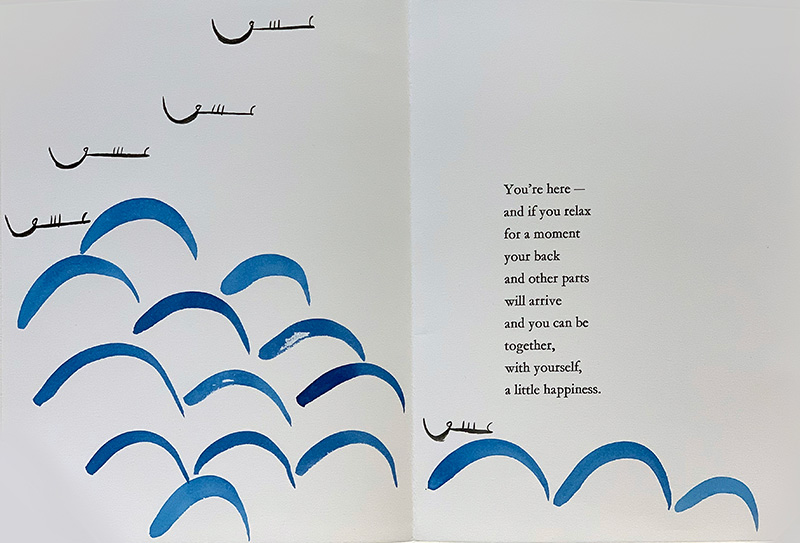 عسق
عسق
عسق
عسق
You're here —
and if you relax
for a moment
your back
and other parts
will arrive
and you can be
together,
with yourself,
a little happiness.
عسق